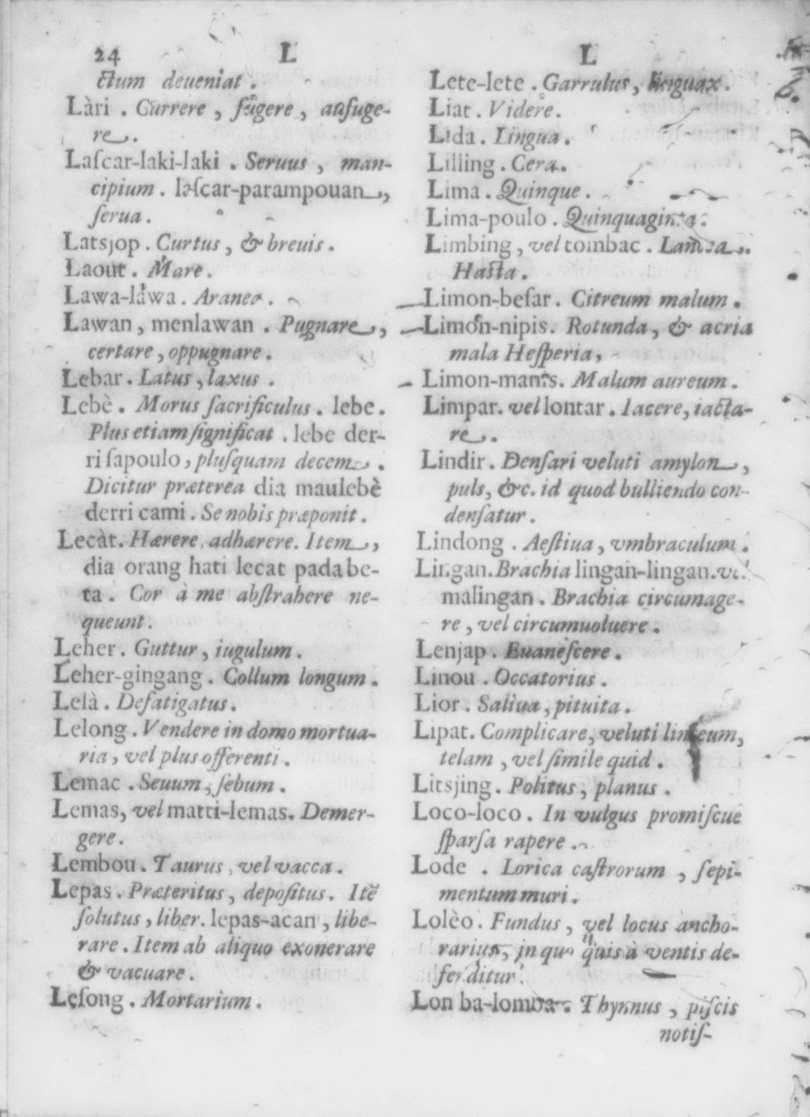 24 L
ctum deueniat.
Làri. Currere, fugere, aufuge-
re.
Laſcar-laki-laki. Seruus, man-
cipium. laſcar-parampouan,
ſerua.
Latsjop. Curtus, & breuis.
Laout. Mare.
Lawa-lawa. Aranea.
Lawan, menlawan. Pugnare,
certare, oppugnare.
Lebar. Latus, laxus.
Lebè. Morus ſacrificulus. lebe.
Plus etiam ſignificat. lebe der-
ri ſapoulo, pluſquam decem.
Dicitur præterea dia maulebè
derri cami. Se nobis præponit.
Lecàt. Hærere, adhærere. Item,
dia orang hati lecat pada be-
ta. Cor à me abſtrahere ne-
queunt.
Leher. Guttur, iugulum.
Leher-gingang. Collum longum.
Lelà. Defatigatus.
Lelong. Vendere in domo mortua-
ria, vel plus offerenti.
Lemac. Seuum, ſebum.
Lemas, vel matti-lemas. Demer-
gere.
Lembou. Taurus, vel vacca.
Lepas. Præteritus, depoſitus. Itē
ſolutus, liber. lepas-acan, libe-
rare. Item ab aliquo exonerare
& vacuare.
Leſong. Mortarium.
L
Lete-lete. Garrulus, linguax.
Liat. Videre.
Lida. Lingua.
Lilling. Cera.
Lima. Quinque.
Lima-poulo. Quinquaginta.
Limbing, vel tombac. Lancea.
Haſta.
Limon-beſar. Citreum malum.
Limon-nipis. Rotunda, & acria
mala Heſperia,
Limon-manis. Malum aureum.
Limpar. vel lontar. Iacere, iacta-
re.
Lindir. Denſari veluti amylon,
puls, &c. id quod bulliendo con-
denſatur.
Lindong. Aeſtiua, vmbraculum.
Lingan. Brachia lingan-lingan. vel
malingan. Brachia circumage-
re, vel circumuoluere.
Lenjap. Euaneſcere.
Linou. Occatorius.
Lior. Saliua, pituita.
Lipat. Complicare, veluti linteum,
telam, vel ſimile quid.
Litsjing. Politus, planus.
Loco-loco. In vulgus promiſcue
ſparſa rapere.
Lode. Lorica caſtrorum, ſepi-
mentum muri.
Lolèo. Fundus, vel locus ancho-
rarius, in quo quis à ventis de-
fenditur.
Lomba-lomba. Thynnus, piſcis
notiſ-